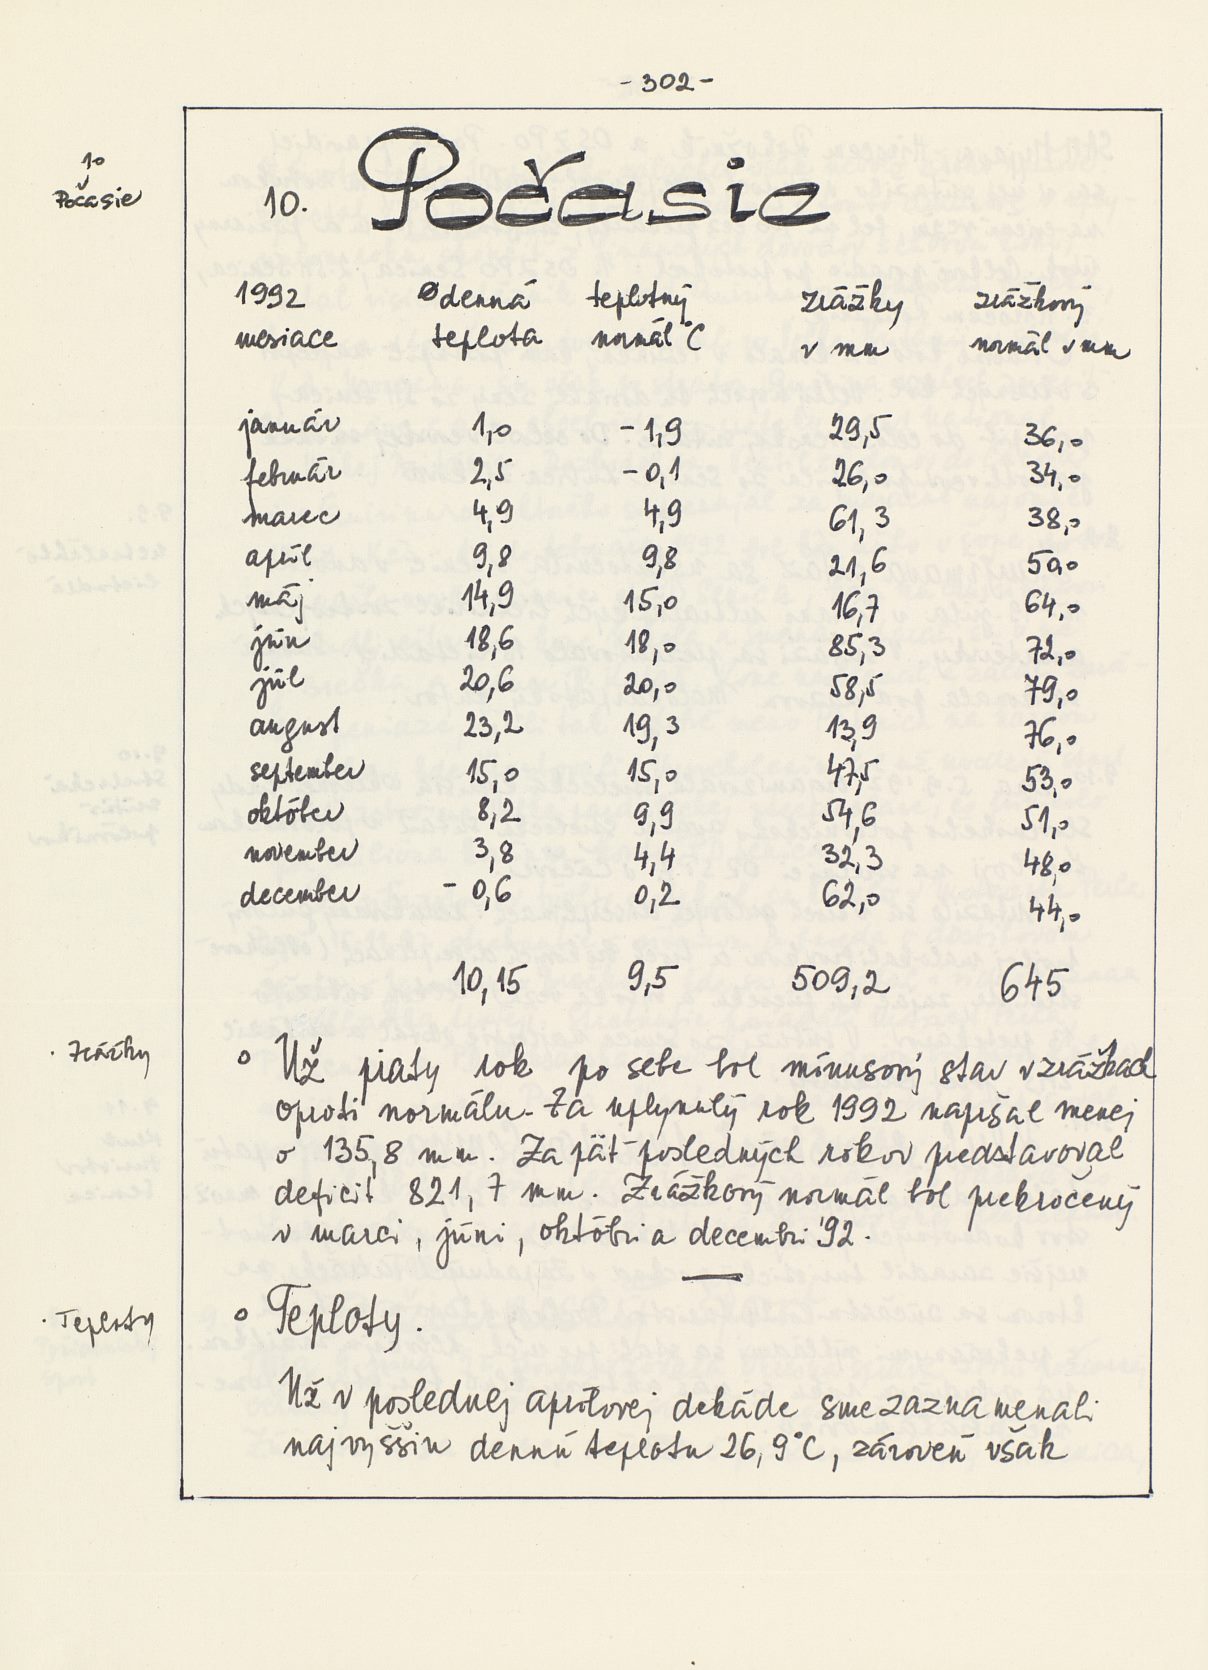 - 302 -
10
Počasie
10. Počasie
1992 ø denná teplotný zrážky zrážkový
mesiace teplota normál °C v mm normál v mm
január 1,0 - 1,9 29,5 36,0
február 2,5 - 0,1 26,0 34,0
marec 4,9 4,9 61,3 38,0
apríl 9,8 9,8 21,6 50,0
máj 14,9 15,0 16,7 64,0
jún 18,6 18,0 85,3 72,0
júl 20,6 20,0 58,5 79,0
august 23,2 19,3 13,9 76,0
september 15,0 15,0 47,5 53,0
október 8,2 9,9 54,6 51,0
november 3,8 4,4 32,3 48,0
december - 0,6 0,2 62,0 44,0
10,15 9,5 509,2 645
· Zrážky
o Už piaty rok po sebe bol mínusový stav v zrážkach
oproti normálu. Za uplynulý rok 1992 napršal menej
o 135,8 mm. Za päť posledných rokov predstavoval
deficit 821,7 mm. Zrážkový normál bol prekročený
v marci, júni, októbri a decembri '92.
· Teploty
o Teploty.
Už v poslednej aprílovej dekáde sme zaznamenali
najvyššiu dennú teplotu 26,9°C, zároveň však